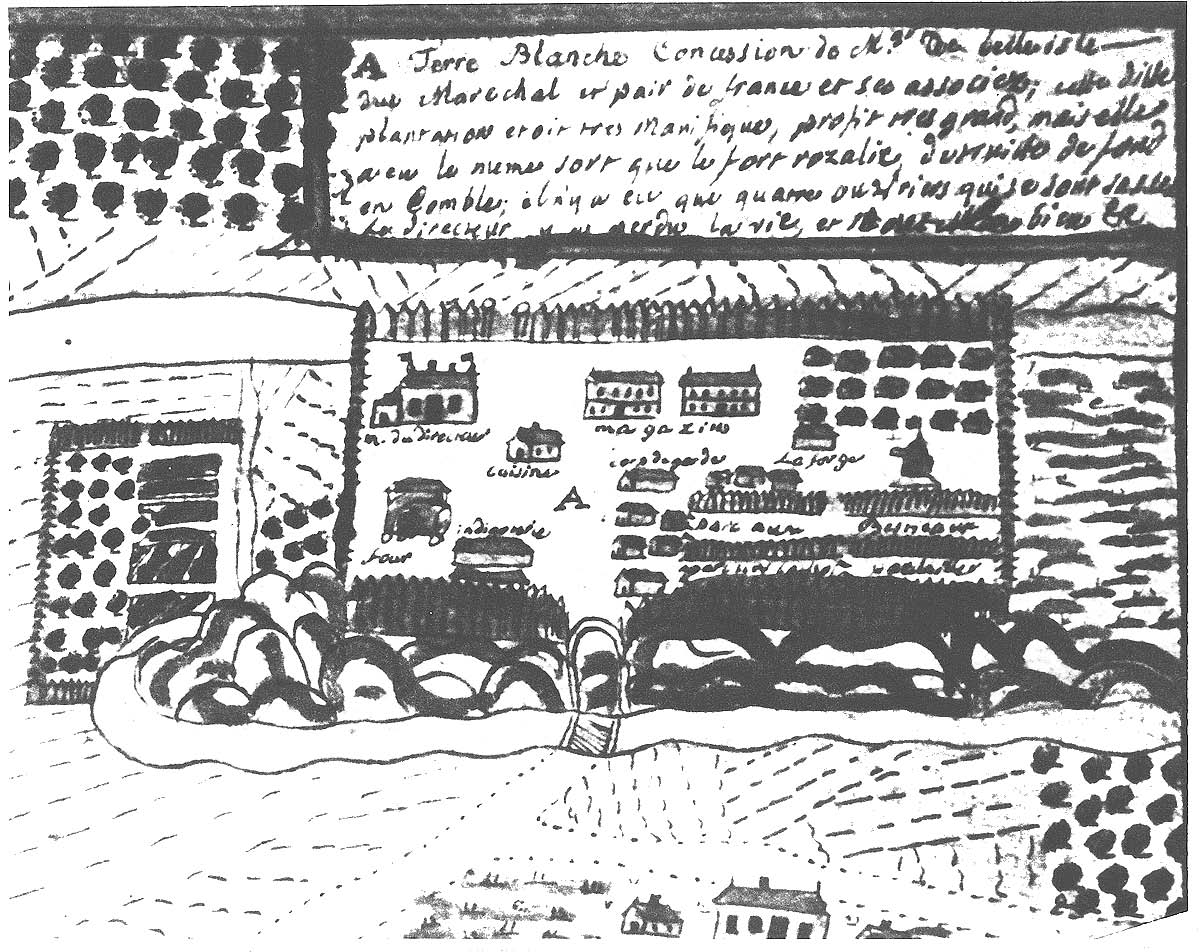 A Terre Blanche Concession de Mgr De belleisle
Duc Marechal et pair de france et ses associez, cette ditte
plantation etoit tres Manifique, profit tres grand, mais elle
a eu le meme sort que le fort rozalie, detruitte de fond
en Comble; il n'y a eu que quatre ouvriers qui se sont
Le directeur y a perdu la vie, et bien &c
m. du directeur
magazins
cuisine
corps de garde
La forge
A
indigoterie
four
parc aux